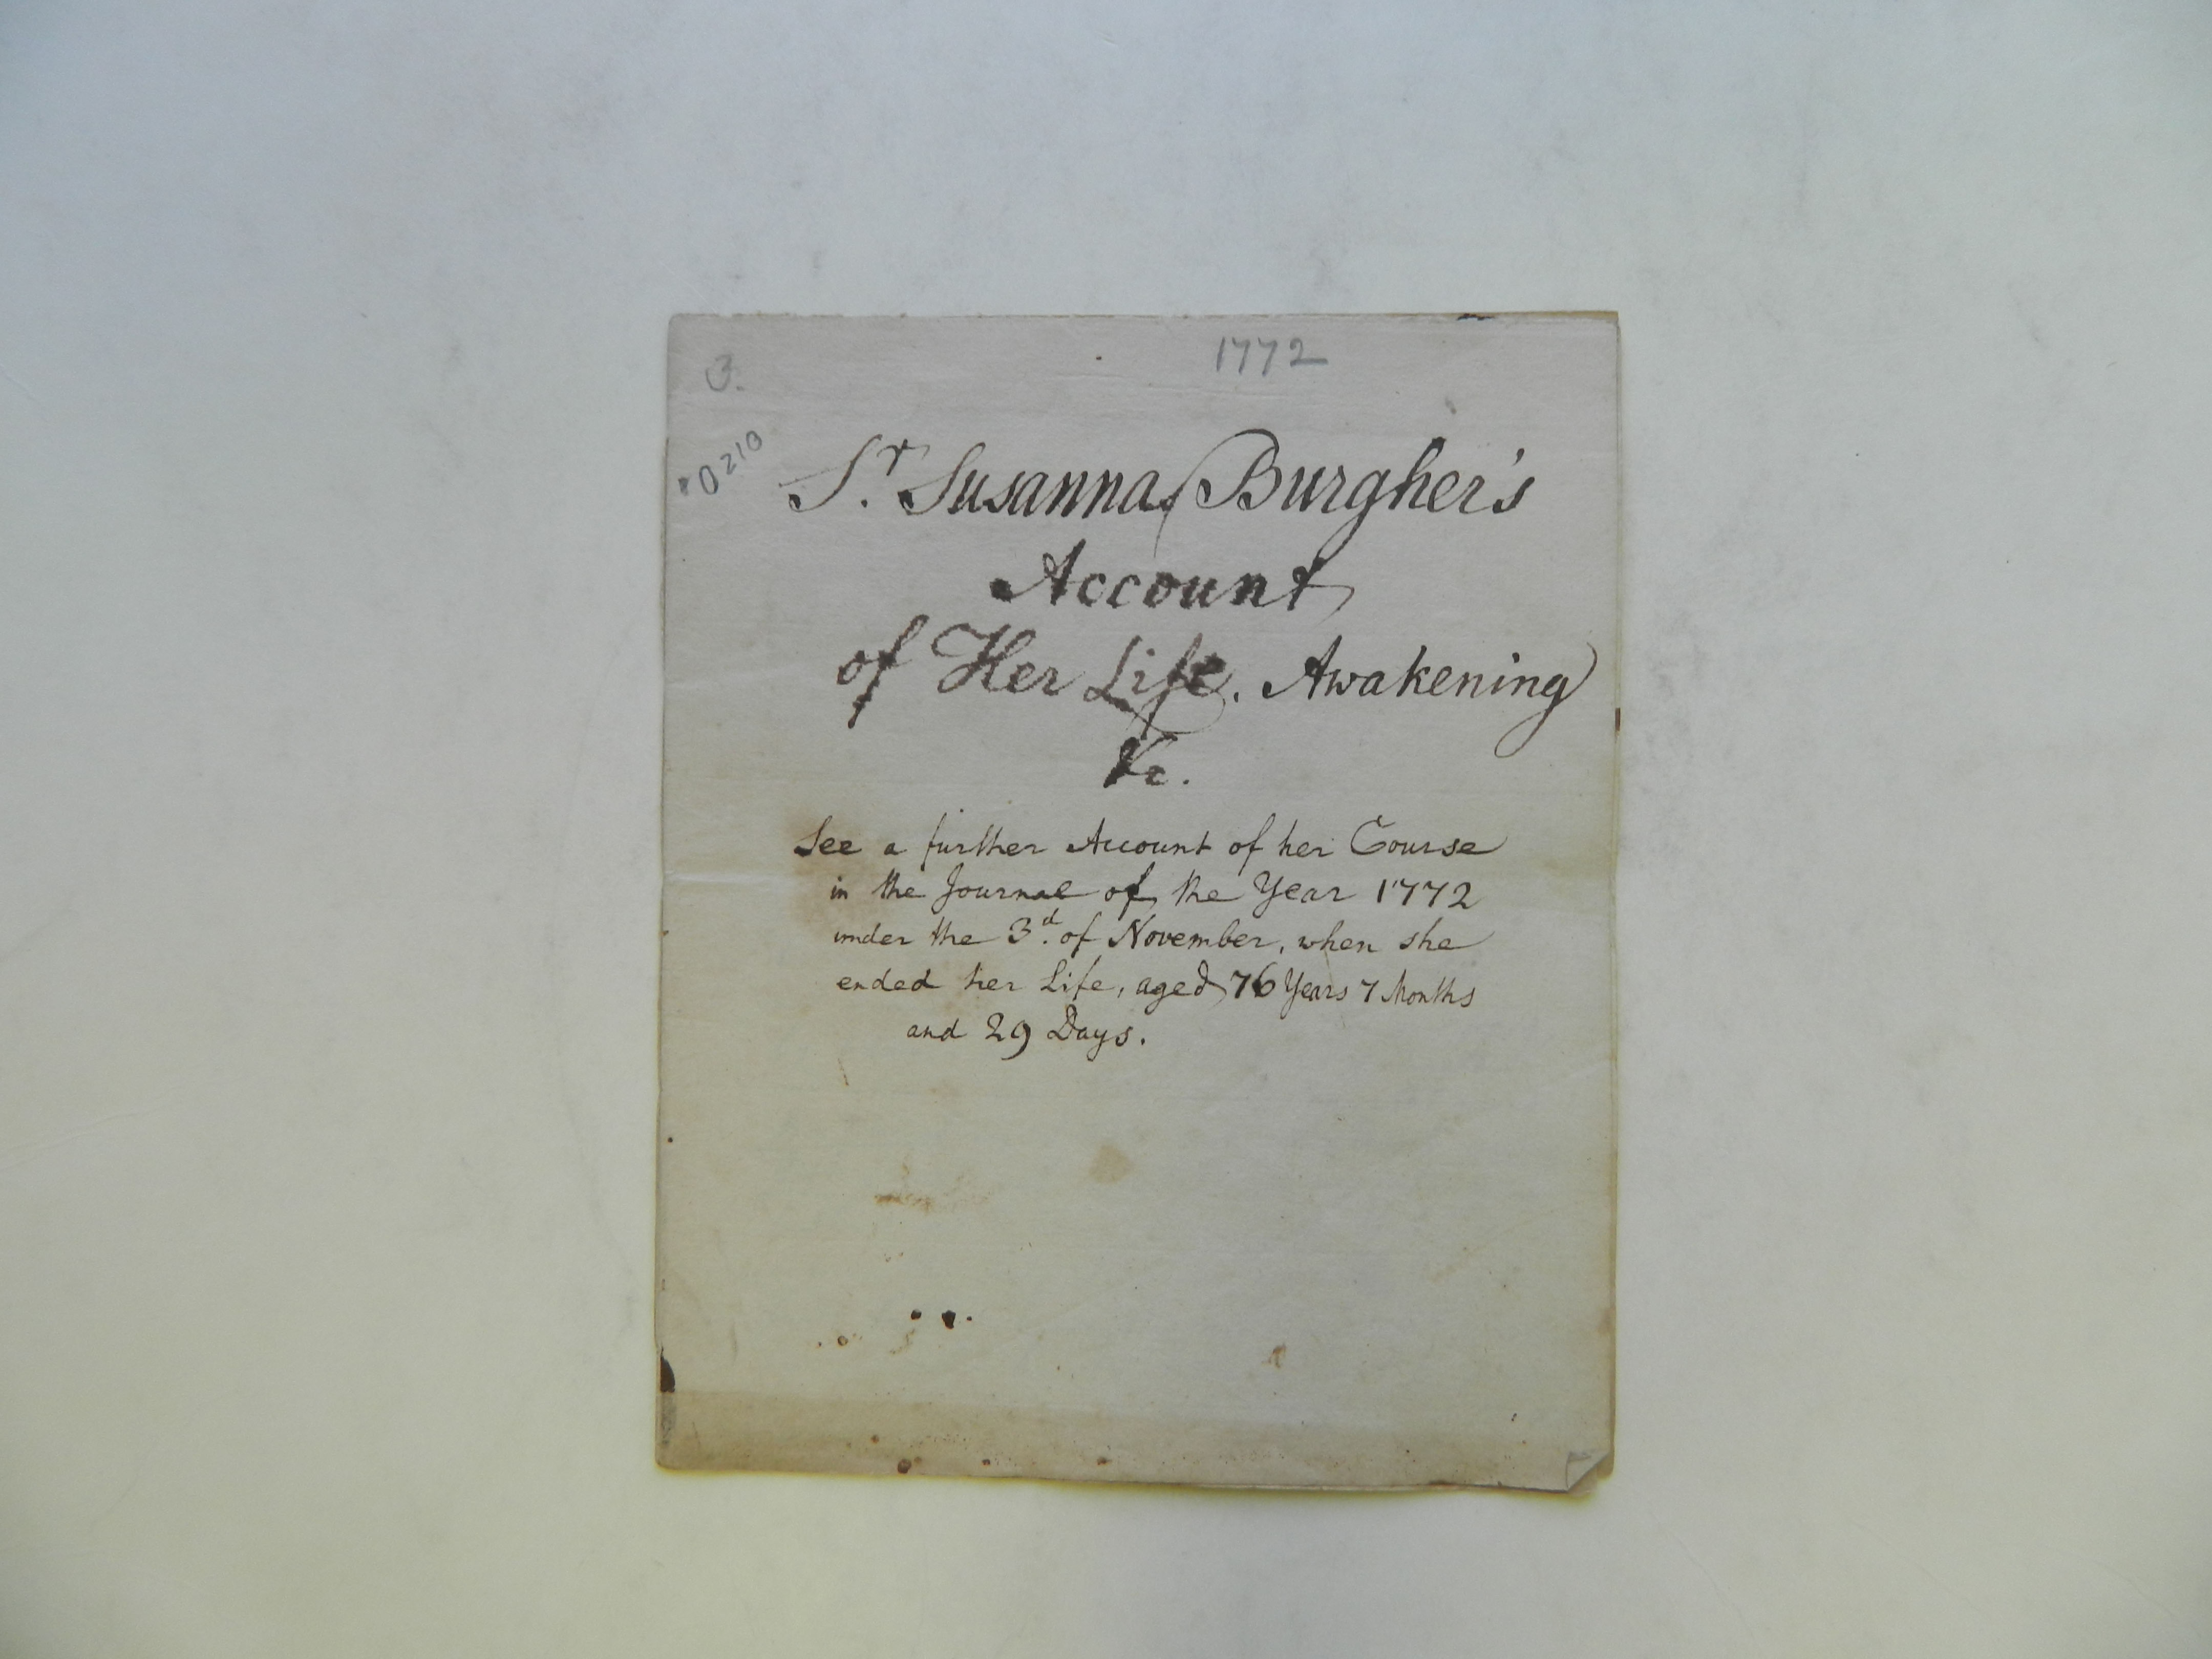 1772
3.
0210
Sr. Susanna Burgher's
Account
of Her Life, Awakening
&c.
See a further Account of her Course
in the Journal of the Year 1772
under the 3d. of November, when she
ended her Life, aged 76 Years 7 Months
and 29 Days.